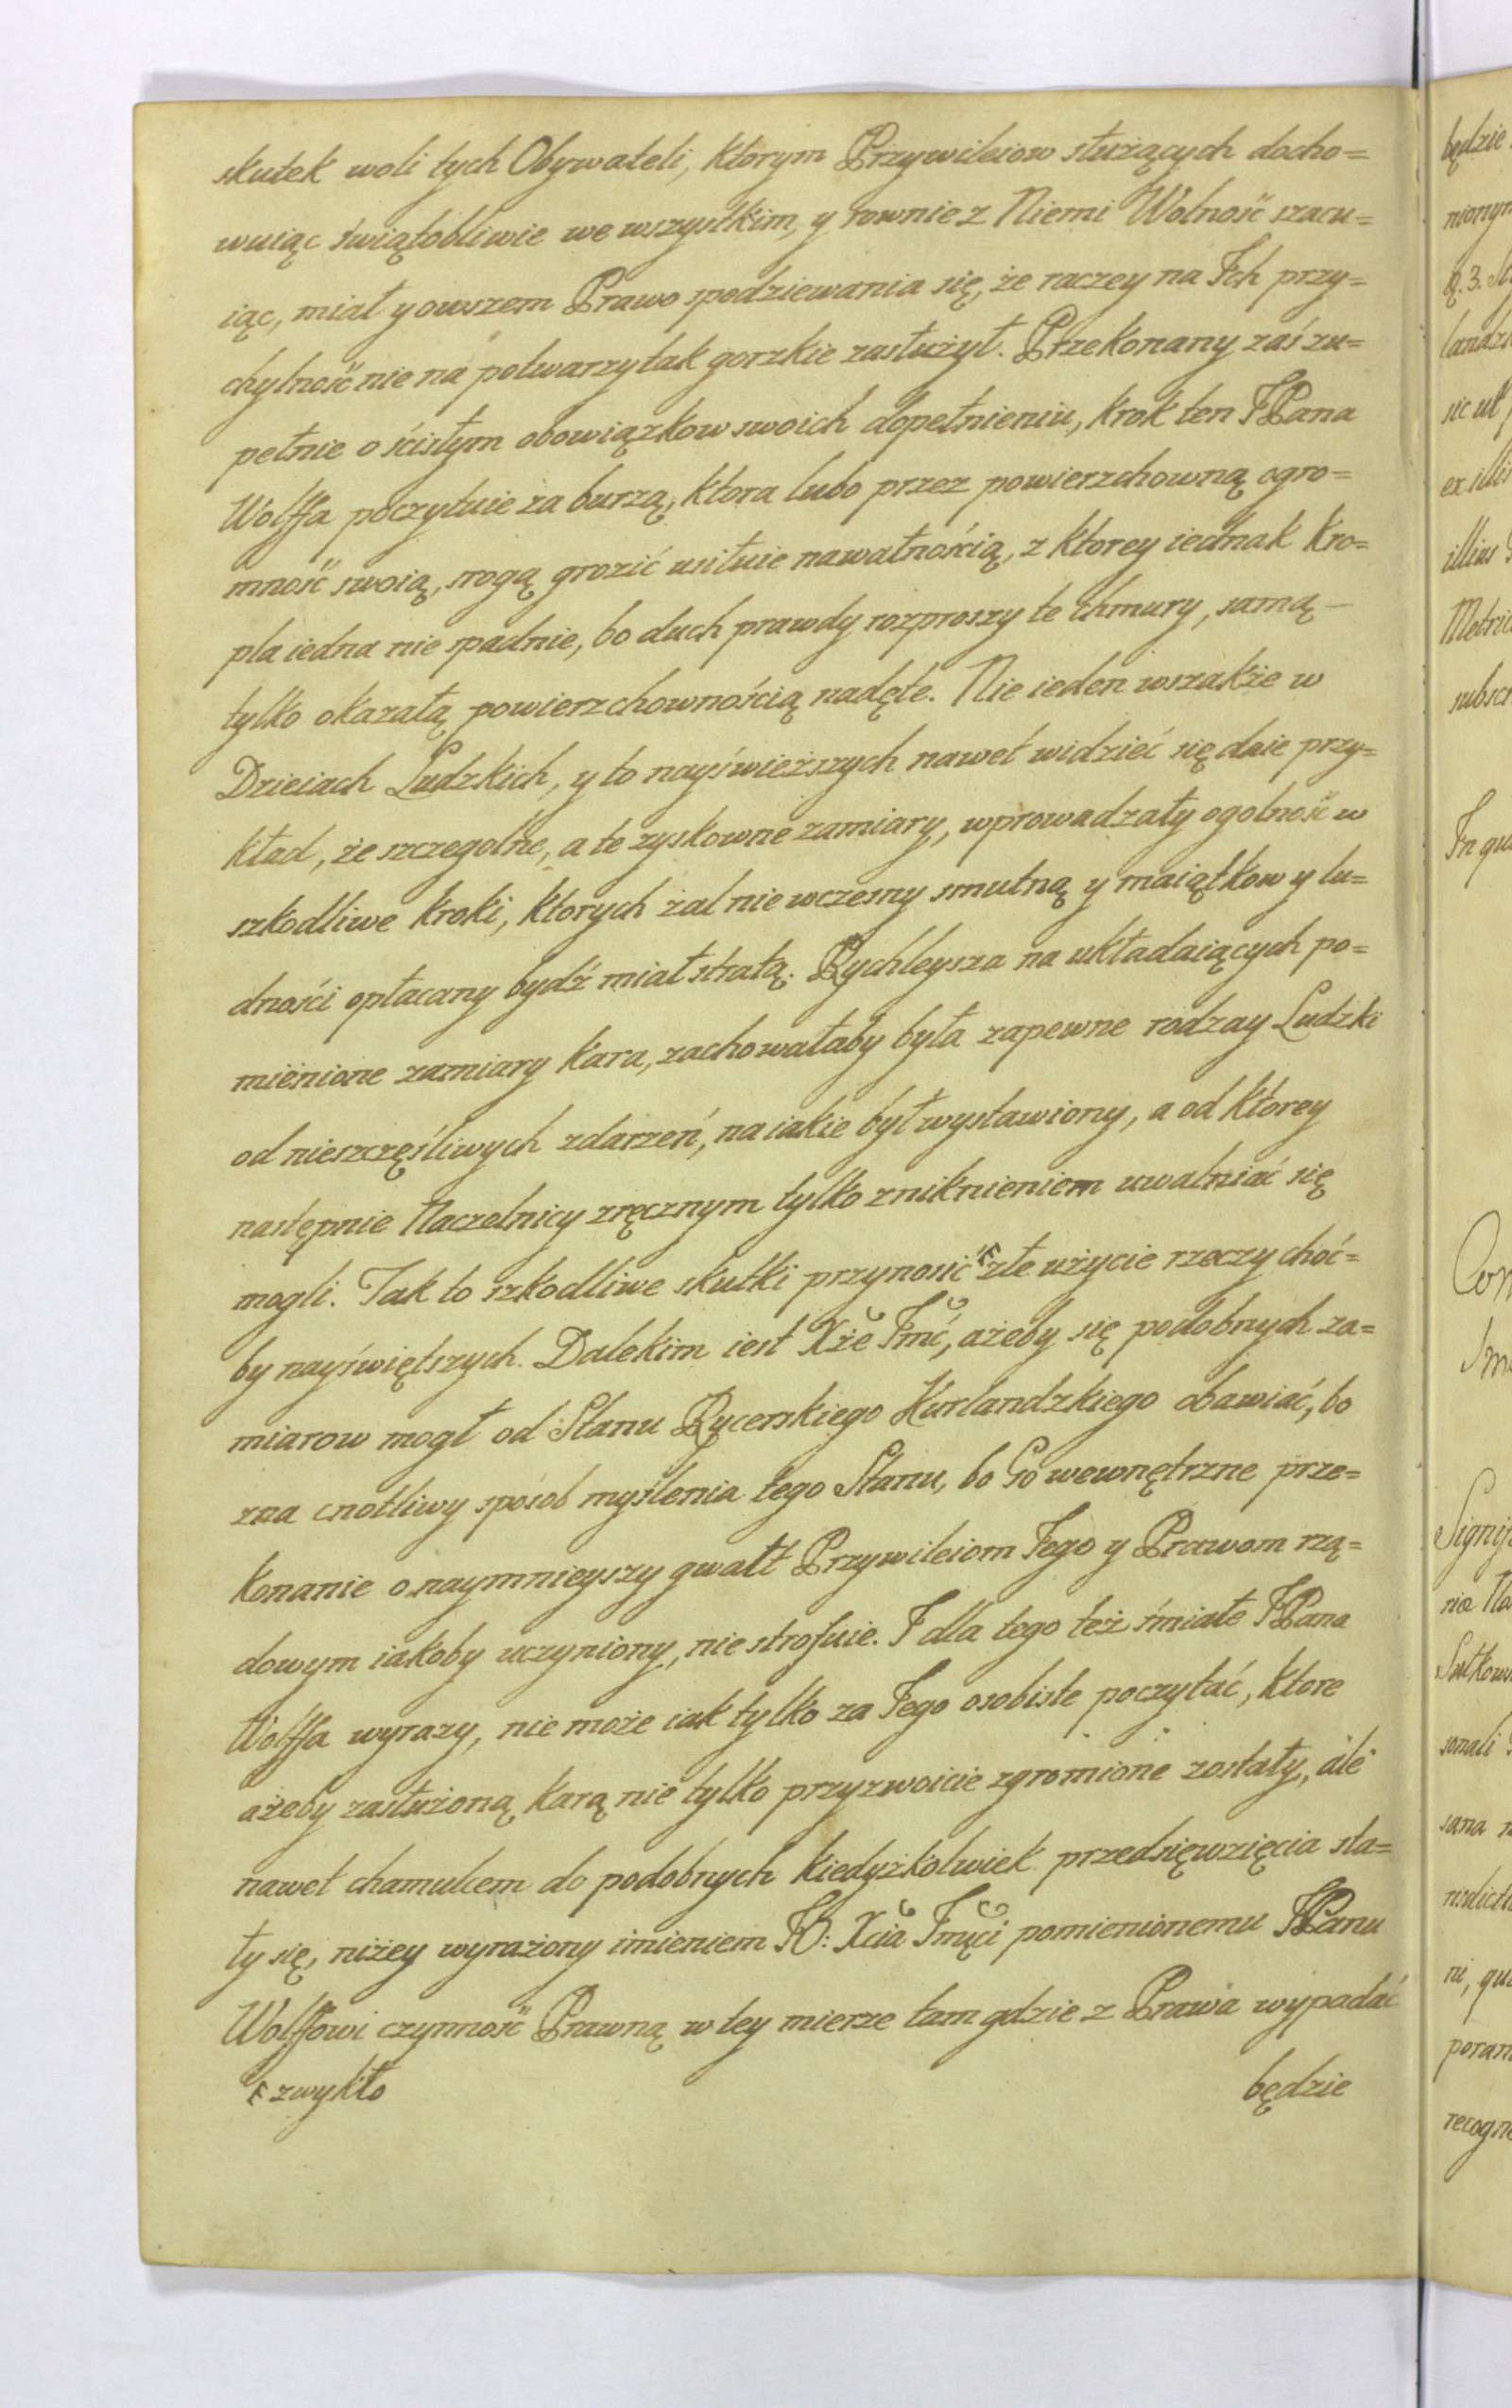 skutek woli tych Obywateli, ktorym Przywileiow służących docho=
wuiąc świątobliwie we wszystkim, y rownie z Niemi Wolność szacu=
iąc, miał y owszem Prawo spodziewania się, że raczey na Ich przy=
chylność nie na potwarzy tak gorzkie zasłużył. Przekonany zaś zu=
pełnie o ścisłym obowiązkow swoich dopełnieniu, krok ten JPana
Wolffa poczytuie za burzą, ktora lubo przez powierzchowną ogro=
mność swoią, srogą grozić usiłuie nawałnością, z ktorey iednak kro=
pla iedna nie spadnie, bo duch prawdy rozproszy te chmury, samą
tylko okazałą powierzchownością nadęte. Nie ieden wszakże w
Dzieiach Ludzkich, y to nayświeższych nawet widzieć się daie przy=
kład, że szczegolne, a te zyskowne zamiary, wprowadzały ogolność w
szkodliwe kroki, ktorych żal nie wczesny smutną y maiątkow y lu=
dności opłacany bydź miał stratą. Rychleysza na układaiących po=
mienione zamiary kara, zachowałaby była zapewne rodzay Ludzki
od nieszczęśliwych zdarzeń, na iakie był wystawiony, a od ktorey
następnie Naczelnicy zręcznym tylko zniknieniem uwalniać się
mogli. Tak to szkodliwe skutki przynosić złe użycie rzeczy choć=
by nayświętszych. Dalekim iest Xże Jmć, ażeby się podobnych za=
miarow mogł od Stanu Rycerskiego Kurlandzkiego obawiać, bo
zna cnotliwy sposob myślenia tego Stanu, bo Go wewnętrzne prze=
konanie o naymnieyszy gwałt Przywileiom Jego y Prawom rzą=
dowym iakoby uczyniony, nie strofuie. I dla tego też śmiałe JPana
Wolffa wyrazy, nie może iak tylko za Jego osobiste poczytać, ktore
ażeby zasłużoną karą nie tylko przyzwoicie zgromione zostały, ale
nawet chamulcem do podobnych kiedyżkolwiek przedsięwzięcia sta=
ły się, niżey wyrażony imieniem JO: Xcia Jmci pomienionemu JPanu
Wolffowi czynność Prawną w tey mierze tam gdzie z Prawa wypadać
zwykło
będzie
będzie
landz
sic ut
ex illi
illius
Metric
subscr
In qu
Con
Signi
nia Na
sonali
sana
ni, qu
recogn